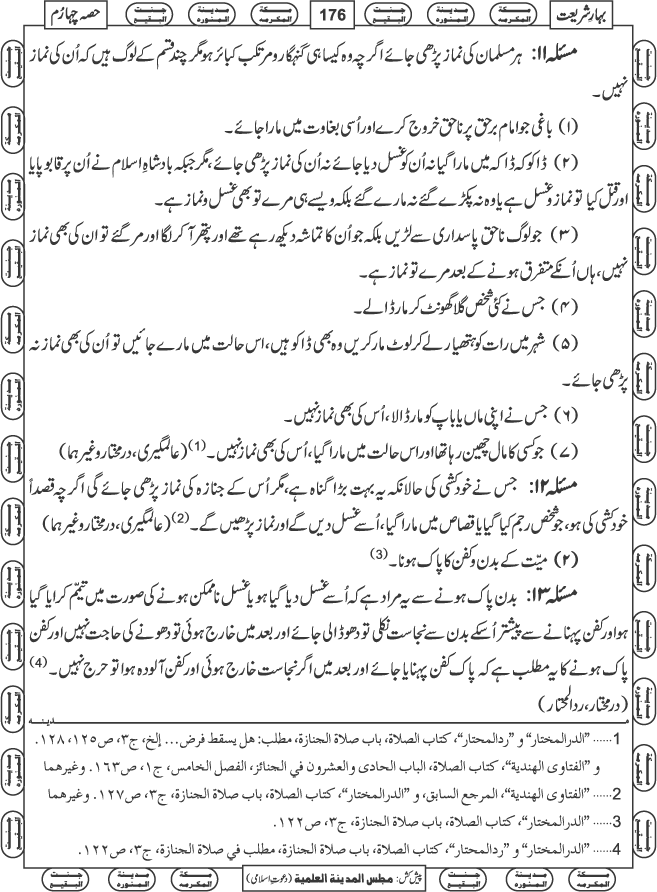 بہارِ شریعت
176
حصہ چہارم
مسئلہ ۱۱: ہر مسلمان کی نماز پڑھی جائے اگرچہ وہ کیسا ہی گنہگار و مرتکب کبائر ہو مگر چند قسم کے لوگ ہیں کہ اُن کی نماز
نہیں۔
(۱) باغی جو امام برحق پر ناحق خروج کرے اور اُسی بغاوت میں مارا جائے۔
(۲) ڈاکو کہ ڈاکہ میں مارا گیا نہ اُن کو غسل دیا جائے نہ اُن کی نماز پڑھی جائے، مگر جبکہ بادشاہِ اسلام نے اُن پر قابو پایا
اور قتل کیا تو نماز و غسل ہے یا وہ نہ پکڑے گئے نہ مارے گئے بلکہ ویسے ہی مرے تو بھی غسل و نماز ہے۔
(۳) جو لوگ ناحق پاسداری سے لڑیں بلکہ جو اُن کا تماشہ دیکھ رہے تھے اور پتھر آ کر لگا اور مر گئے تو ان کی بھی نماز
نہیں، ہاں اُنکے متفرق ہونے کے بعد مرے تو نماز ہے۔
(۴) جس نے کئی شخص گلا گھونٹ کر مار ڈالے۔
(۵) شہر میں رات کو ہتھیار لے کر لوٹ مار کریں وہ بھی ڈاکو ہیں، اس حالت میں مارے جائیں تو اُن کی بھی نماز نہ
پڑھی جائے۔
(۶) جس نے اپنی ماں یا باپ کو مار ڈالا، اُس کی بھی نماز نہیں۔
(۷) جو کسی کا مال چھین رہا تھا اور اس حالت میں مارا گیا، اُس کی بھی نماز نہیں۔(1) (عالمگیری، درمختار وغیرہما)
مسئلہ ۱۲: جس نے خودکشی کی حالانکہ یہ بہت بڑا گناہ ہے، مگر اُس کے جنازہ کی نماز پڑھی جائے گی اگرچہ قصداً
خودکشی کی ہو، جو شخص رجم کیا گیا یا قصاص میں مارا گیا، اُسے غسل دیں گے اور نماز پڑھیں گے۔(2) (عالمگیری، درمختار وغیرہما)
(۲) میّت کے بدن و کفن کا پاک ہونا۔(3)
مسئلہ ۱۳: بدن پاک ہونے سے یہ مراد ہے کہ اُسے غسل دیا گیا ہو یا غسل ناممکن ہونے کی صورت میں تیمّم کرایا گیا
ہو اور کفن پہنانے سے پیشتر اُسکے بدن سے نجاست نکلی تو دھو ڈالی جائے اور بعد میں خارج ہوئی تو دھونے کی حاجت نہیں اور کفن
پاک ہونے کا یہ مطلب ہے کہ پاک کفن پہنایا جائے اور بعد میں اگر نجاست خارج ہوئی اور کفن آلودہ ہوا تو حرج نہیں۔(4)
(درمختار، ردالمحتار)
1...... "الدرالمختار" و "ردالمحتار"، کتاب الصلاة، باب صلاة الجنازة، مطلب: هل يسقط فرض... إلخ، ج۳، ص۱۲۵، ۱۲۸.
و "الفتاوى الهندية"، کتاب الصلاة، الباب الحادی والعشرون في الجنائز، الفصل الخامس، ج۱، ص۱۶۳. وغيرهما
2...... "الفتاوى الهندية"، المرجع السابق، و "الدرالمختار"، کتاب الصلاة، باب صلاة الجنازة، ج۳، ص۱۲۷. وغيرهما
3...... "الدرالمختار"، کتاب الصلاة، باب صلاة الجنازة، ج۳، ص۱۲۲.
4...... "الدرالمختار" و "ردالمحتار"، کتاب الصلاة، باب صلاة الجنازة، مطلب في صلاة الجنازة، ج۳، ص۱۲۲.
پیش کش: مجلس المدینة العلمیة (دعوتِ اسلامی)